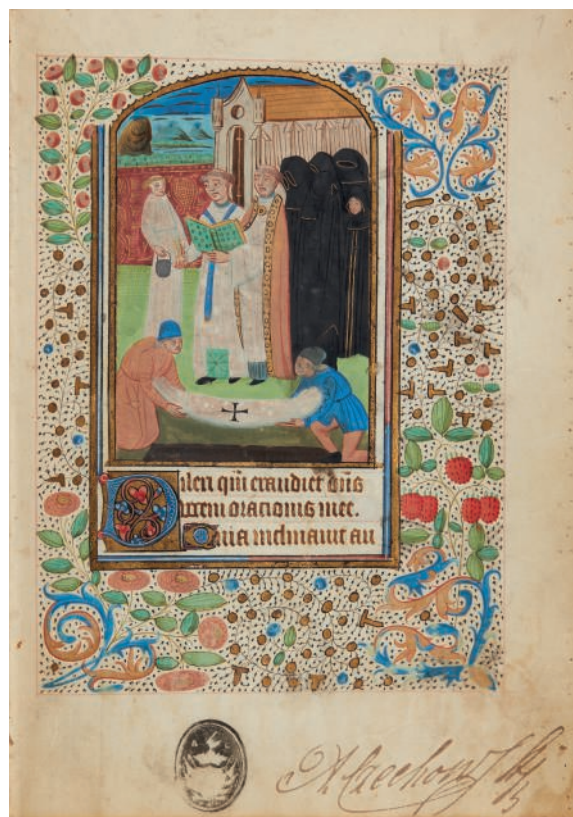 Dilexi qm̄ exaudiet dn̄s
vocem oracionis mee.
Quia inclinauit au